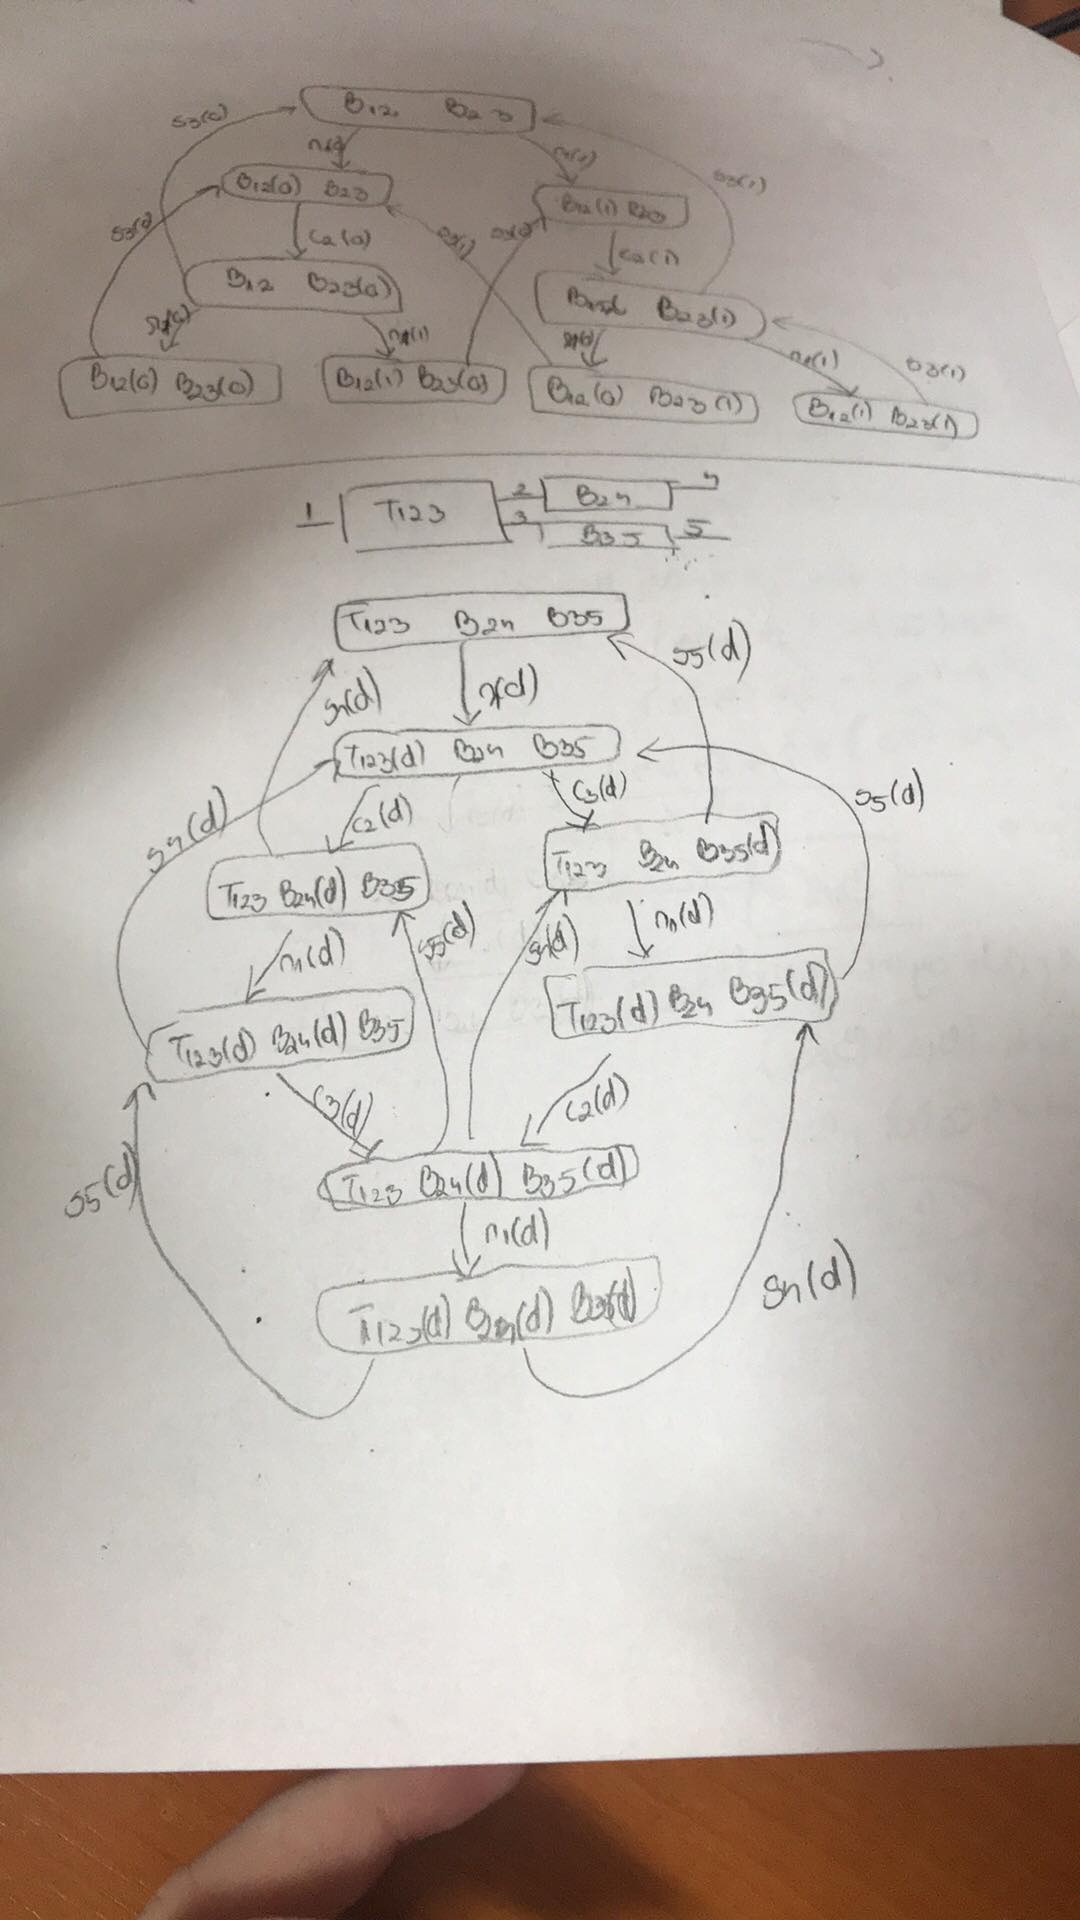 B12 B23
s3(0)
r1(0) r1(1)
s3(1)
B12(0) B23
B12(1) B23
s3(0)
c2(0)
s3(1)
s3(0)
c2(1)
B12 B23(0)
B12 B23(1)
r1(0) r1(1)
r1(0) r1(1)
s3(1)
B12(0) B23(0)
B12(1) B23(0)
B12(0) B23(1)
B12(1) B23(1)
1 T123 2 B24 4
3 B35 5
T123 B24 B35
s4(d) r1(d) s5(d)
T123(d) B24 B35
s4(d) c2(d) c3(d) s5(d)
T123 B24(d) B35
T123 B24 B35(d)
r1(d) s5(d) s4(d) r1(d)
T123(d) B24(d) B35
T123(d) B24 B35(d)
c3(d) c2(d)
T123 B24(d) B35(d)
s5(d) r1(d) s4(d)
T123(d) B24(d) B35(d)